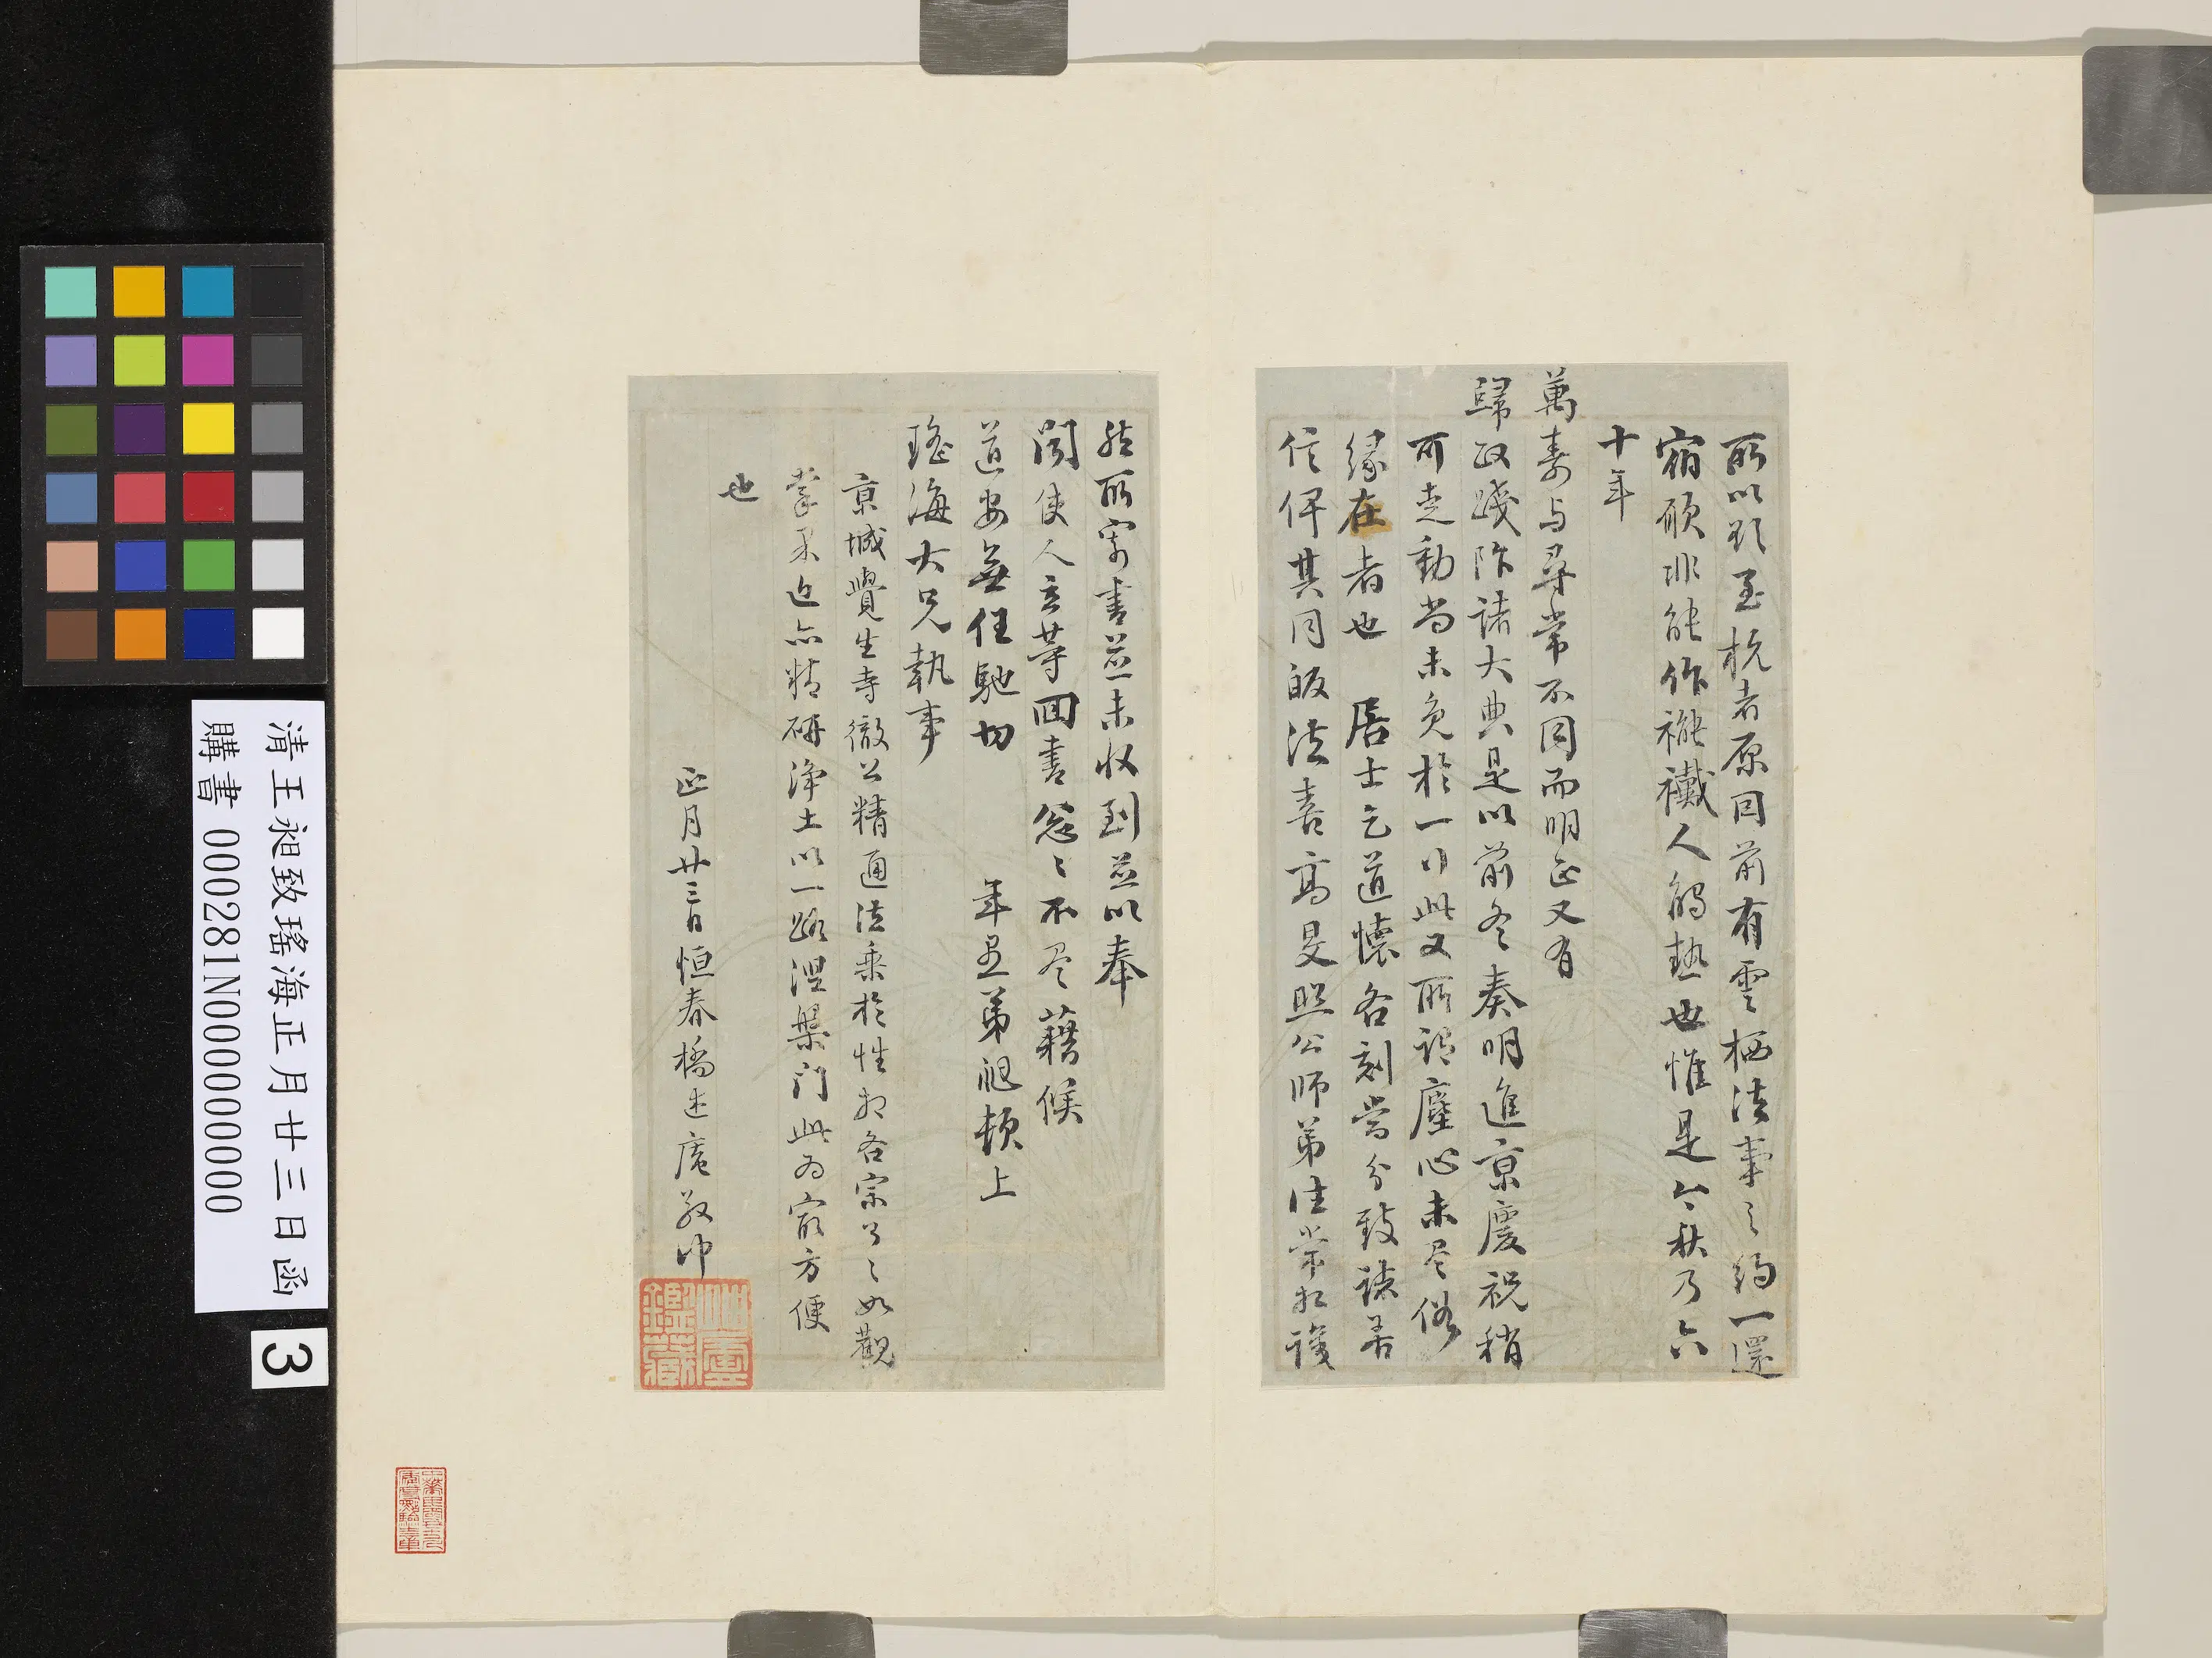 所以欲至杭者原因前有雲栖法事之約一還
宿願非能作褦襶人觸熱也惟是今秋乃六
十年
萬壽与尋常不同而明正又有
歸政踐阼諸大典是以前冬奏明進京慶祝稍
可走動尚未免於一行此又所謂塵心未尽俗
緣在者也 居士乞道懷各刻當分致諸善
信俾其同皈法喜高旻照公師弟往常相護
然所寄書並未收到並以奉
聞使人立等回書怱〻不尽藉候
道安無任馳切 年愚弟昶頓上
瑤海大兄執事
京城覺生寺徹公精通法乘於性相各宗了〻如觀
掌果近亦精研淨土以一路涅槃门此为寂方便
也
正月廿三日恒春橋述庵敬冲
鑑藏
清王昶致瑤海正月廿三日函
購書 000281N000000000
3